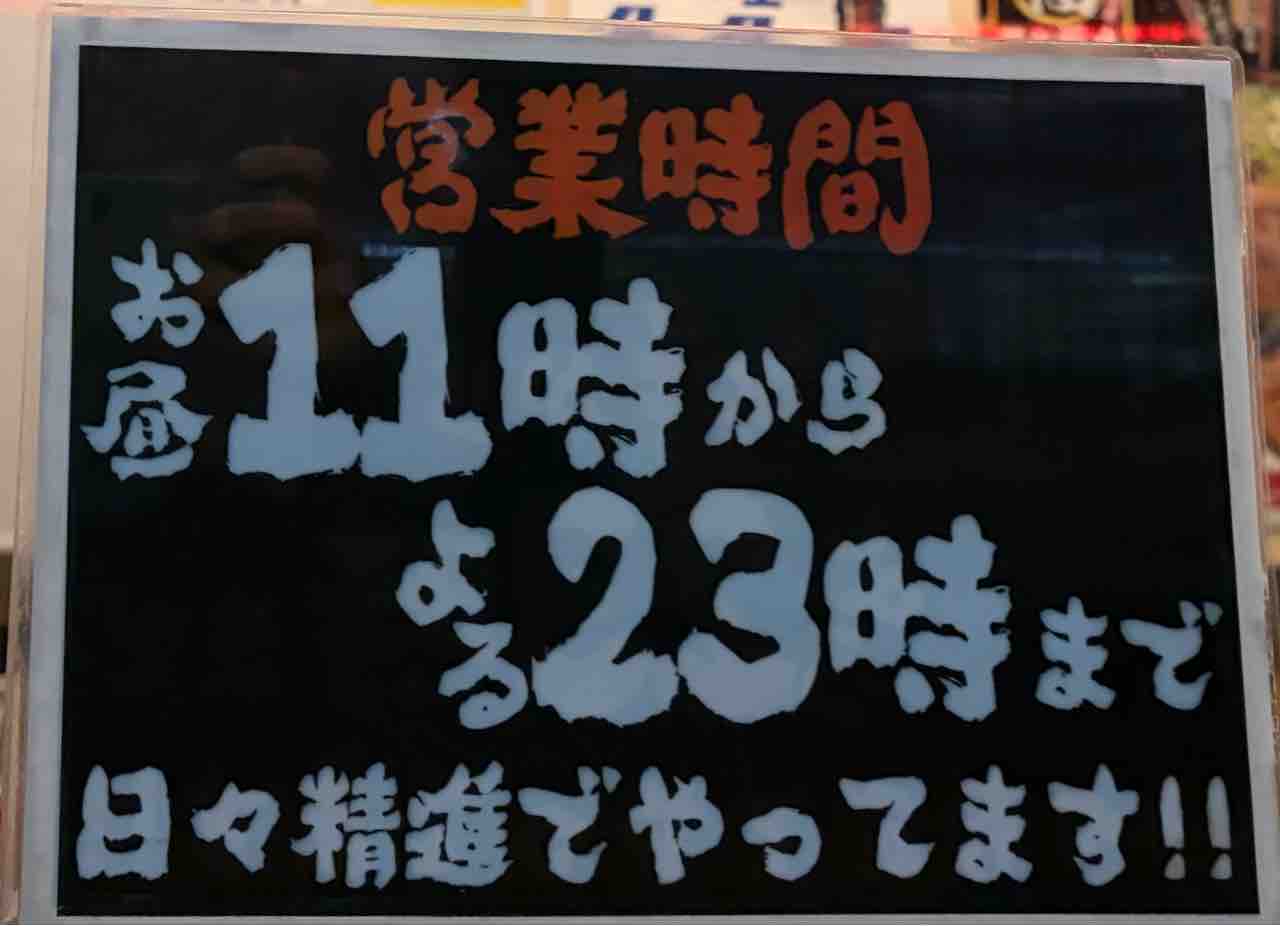 営業時間
お昼11時から
よる23時まで
日々精進でやってます!!